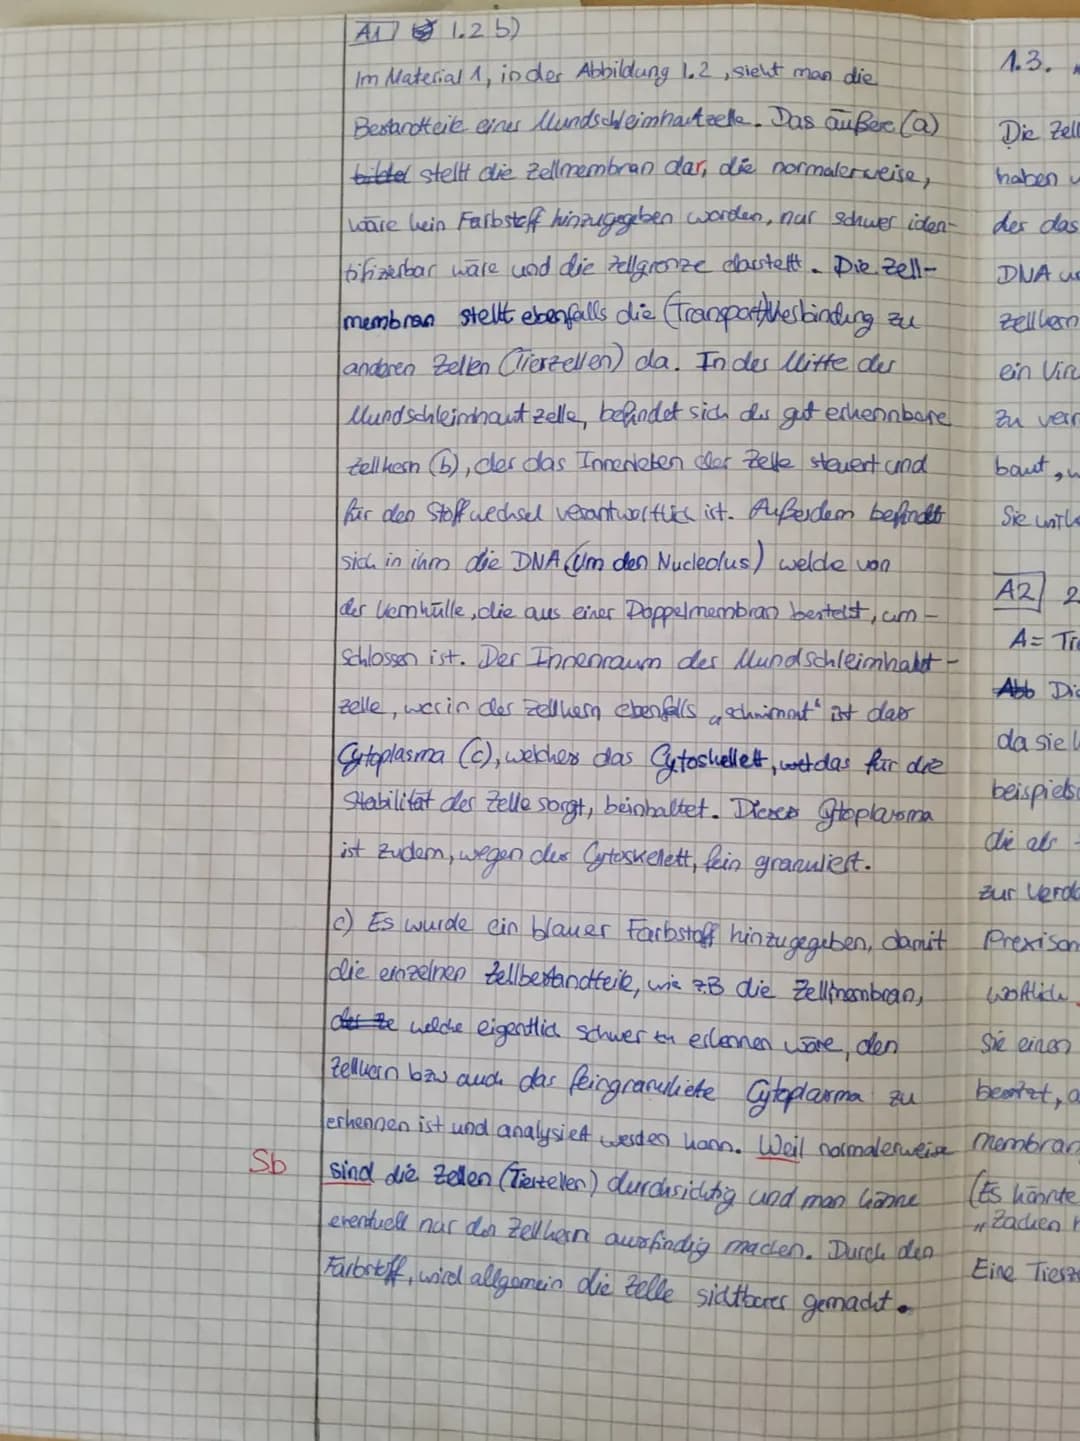 A1 1.2 b)
Im Material 1, in der Abbildung 1.2, sieht man die
Bestandteile einer Mundschleimhautzelle. Das äußere (a)
bildet stellt die Zellmembran dar, die normalerweise,
wäre kein Farbstoff hinzugegeben worden, nur schwer iden-
tifizierbar wäre und die Zellgrenze darstellt. Die Zell-
membran stellt ebenfalls die (Transport)Verbindung zu
anderen Zellen (Tierzellen) da. In der Mitte der
Mundschleimhautzelle, befindet sich der gut erkennbare
Zellkern (b), der das Innenleben der Zelle steuert und
für den Stoffwechsel verantwortlich ist. Außerdem befindet
sich in ihm die DNA (Um den Nucleolus) welche von
der Kernhülle, die aus einer Doppelmembran besteht, um-
schlossen ist. Der Innenraum der Mundschleimhaut-
zelle, worin der Zellkern ebenfalls „schwimmt" ist das
Cytoplasma (c), welches das Cytoskellett, das für die
Stabilität der Zelle sorgt, beinhaltet. Dieses Cytoplasma
ist zudem, wegen des Cytoskelett, fein granuliert.
c) Es wurde ein blauer Farbstoff hinzugegeben, damit
die einzelnen Zellbestandteile, wie z.B die Zellmembran,
welche eigentlich schwer zu erkennen wäre, den
Zellkern bzw auch das feingranulierte Cytoplasma zu
erkennen ist und analysiert werden kann. Weil normalerweise
Sb sind die Zellen (Tierzellen) durchsichtig und man könne
eventuell nur den Zellkern ausfindig machen. Durch den
Farbstoff, wird allgemein die Zelle sichtbarer gemacht.
1.3.
Die Zell
haben
der das
DNA
Zellkern
ein Vir
zu ver
baut,
Sie
A2 2
A= Tr
Abb Die
da sie
beispiels
die als
zur Verda
wortlich
Sie einen
besitzt, a
membran
(Es könnte
„Zacken
Eine Tierz